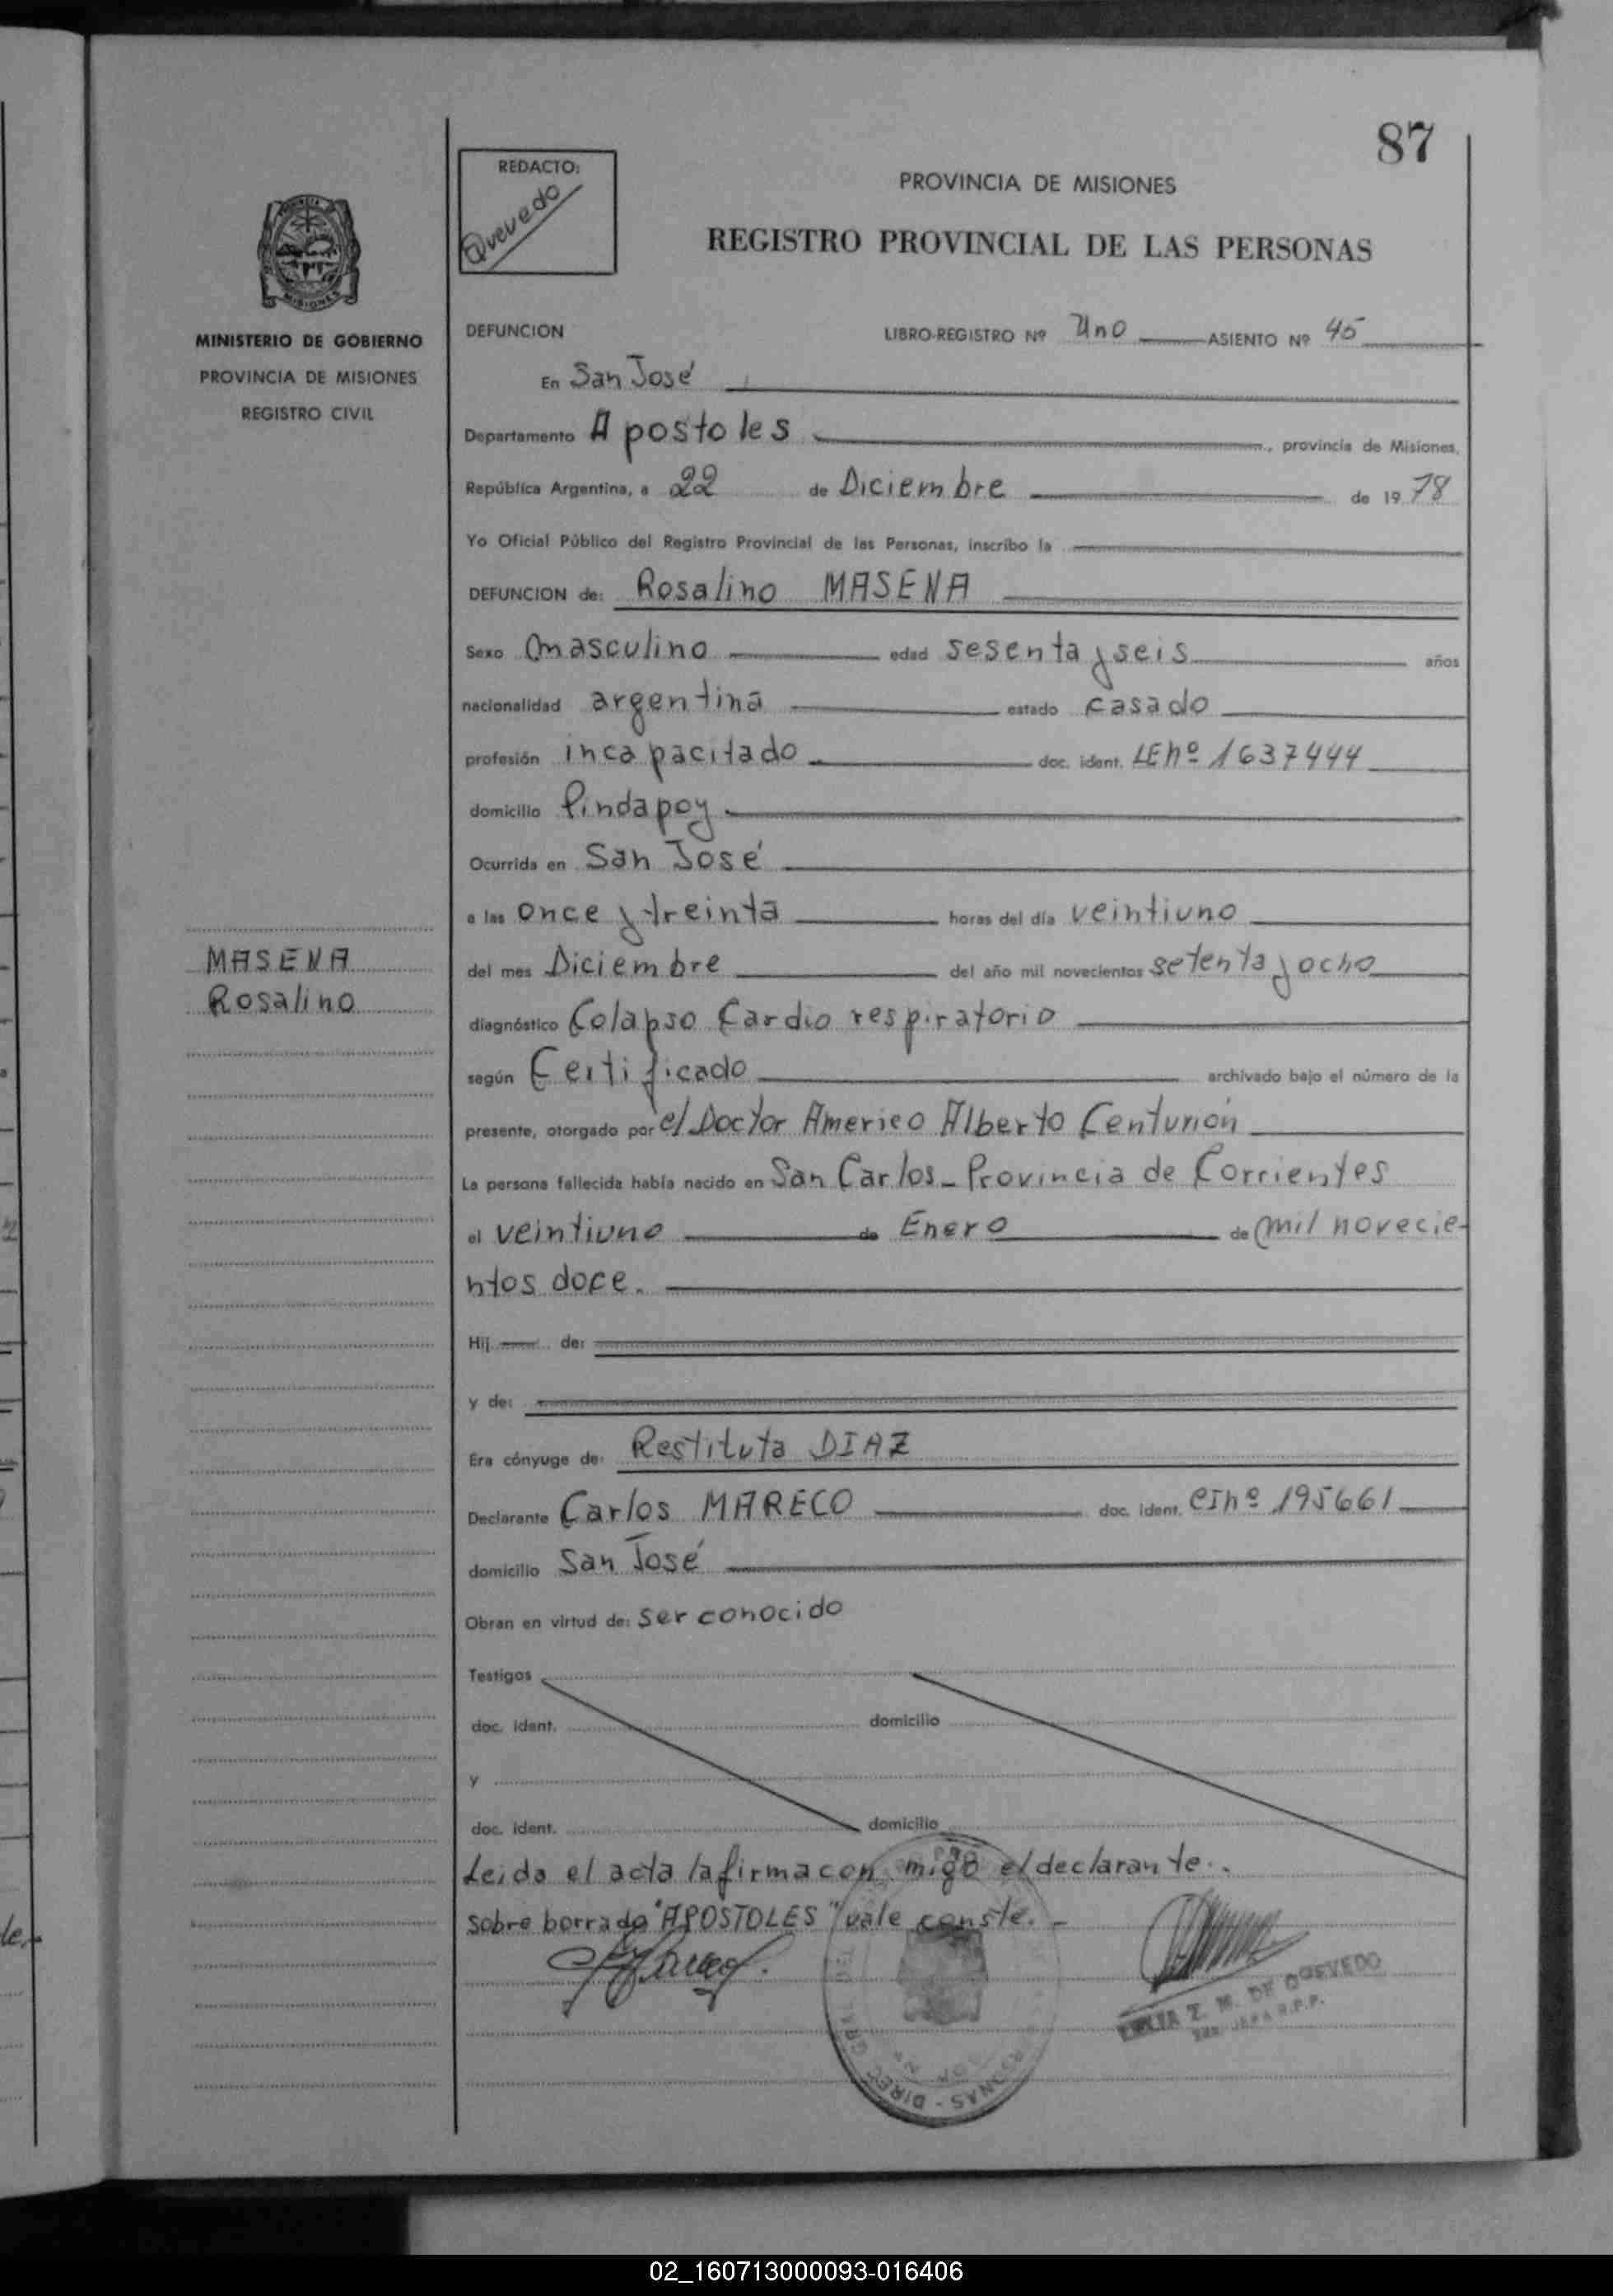 87
REDACTO:
Quevedo
PROVINCIA DE MISIONES
REGISTRO PROVINCIAL DE LAS PERSONAS
MISIONES
MINISTERIO DE GOBIERNO
PROVINCIA DE MISIONES
REGISTRO CIVIL
DEFUNCION LIBRO-REGISTRO Nº Uno ASIENTO Nº 45
En San José
Departamento Apostoles, provincia de Misiones,
República Argentina, a 22 de Diciembre de 1978
Yo Oficial Público del Registro Provincial de las Personas, inscribo la
DEFUNCION de: Rosalino MASENA
Sexo masculino edad sesenta y seis años
nacionalidad argentina estado casado
profesión incapacitado doc. ident. LEnº 1637444
domicilio Pindapoy
Ocurrida en San José
a las once y treinta horas del día veintiuno
MASENA
Rosalino
del mes Diciembre del año mil novecientos setenta y ocho
diagnóstico Colapso Cardio respiratorio
según Certificado archivado bajo el número de la
presente, otorgado por el Doctor Americo Alberto Centurión
La persona fallecida había nacido en San Carlos - Provincia de Corrientes
el veintiuno de Enero de mil novecie-
ntos doce.
Hij de:
y de:
Era cónyuge de: Restituta DIAZ
Declarante Carlos MARECO doc. ident. CInº 195661
domicilio San José
Obran en virtud de: ser conocido
Testigos
doc. ident. domicilio
y
doc. ident. domicilio
Leida el acta la firma con migo el declarante.
Sobre borrado "APOSTOLES" vale conste.-
Z. M. DE QUEVEDO
02_160713000093-016406